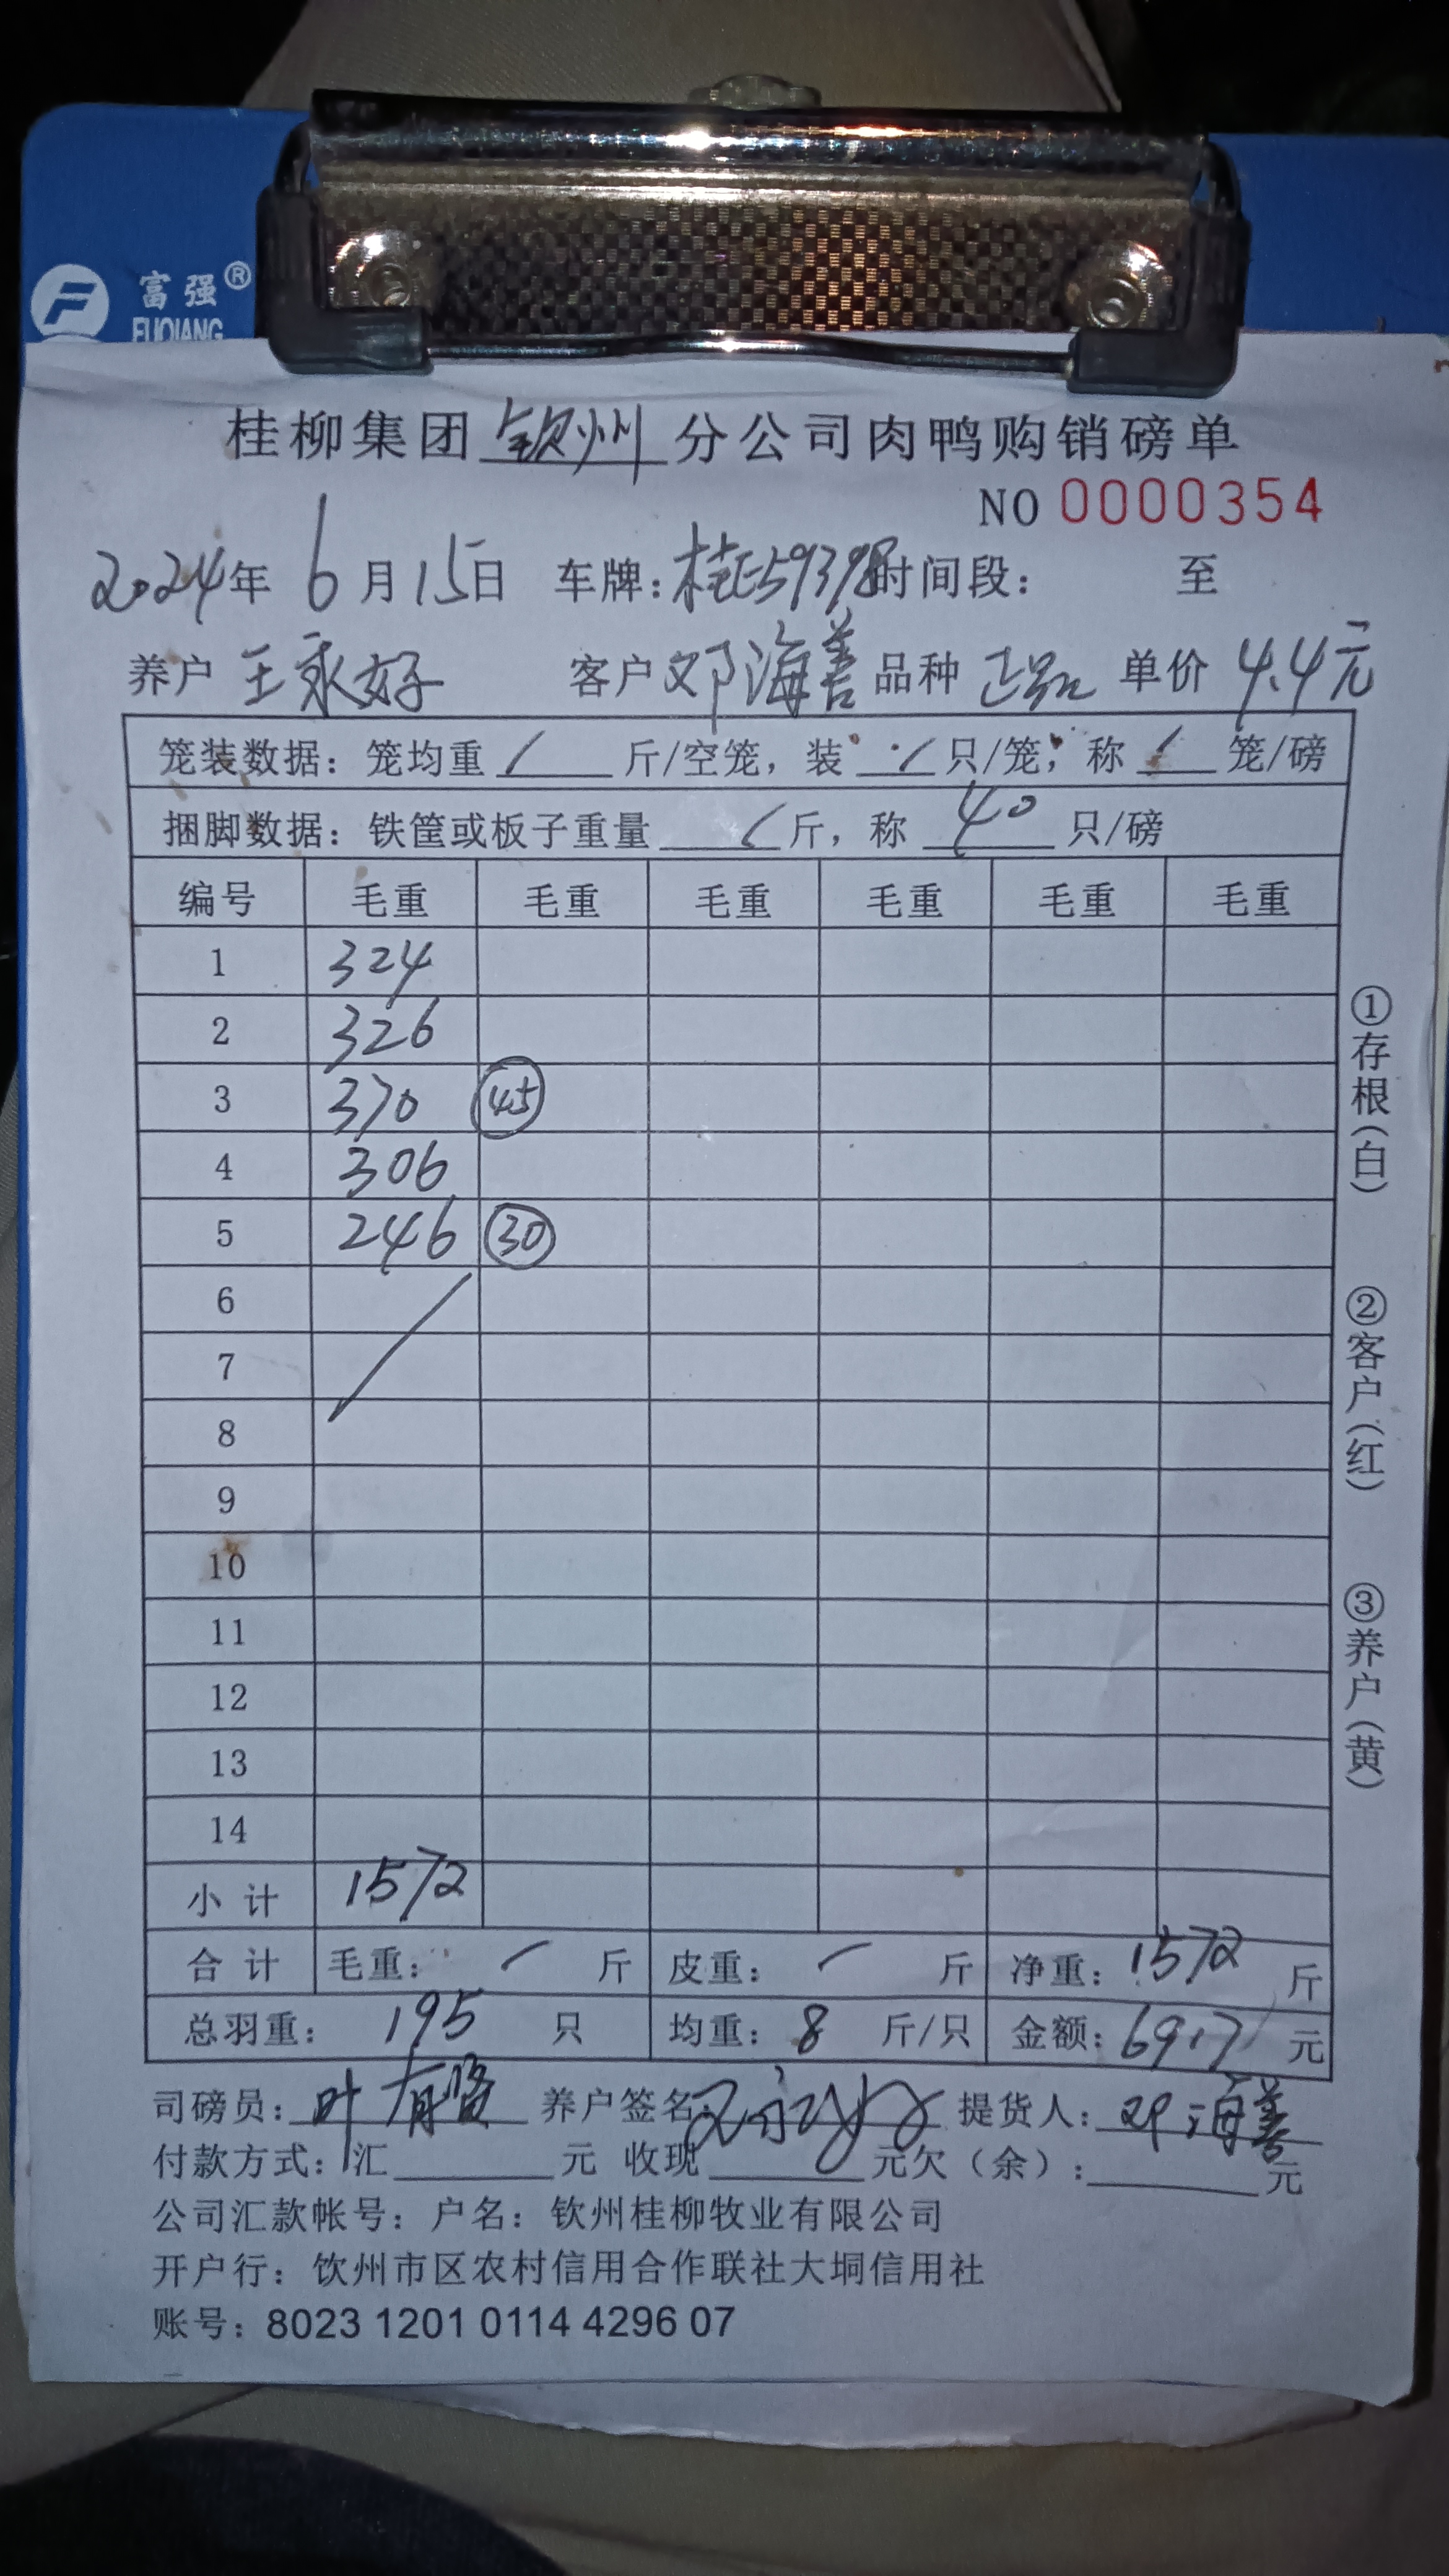 富强®
FUQIANG
桂柳集团钦州分公司肉鸭购销磅单
NO 0000354
2024年6月15日 车牌:桂E59398时间段: 至
养户 王永好 客户 邓海善 品种 正品 单价 4.4元
笼装数据:笼均重 / 斤/空笼,装 / 只/笼,称 / 笼/磅
捆脚数据:铁筐或板子重量 / 斤,称 40 只/磅
编号 毛重 毛重 毛重 毛重 毛重 毛重
1 324
2 326
3 370 45
4 306
5 246 30
6
7
8
9
10
11
12
13
14
小计 1572
合计 毛重: / 斤 皮重: / 斤 净重:1572 斤
总羽重: 195 只 均重:8 斤/只 金额:6917 元
司磅员:叶有贤 养户签名:王永好 提货人:邓海善
付款方式:汇 元 收现 元欠(余): 元
公司汇款帐号:户名:钦州桂柳牧业有限公司
开户行:钦州市区农村信用合作联社大垌信用社
账号:8023 1201 0114 4296 07
①存根(白) ②客户(红) ③养户(黄)